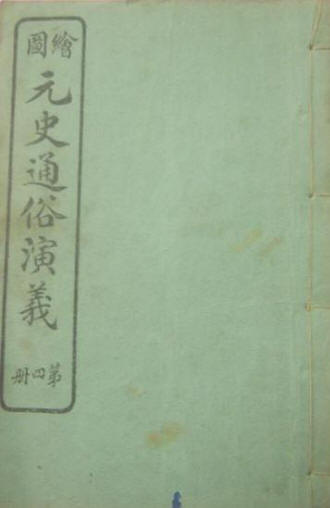 繪圖
元史通俗演義
第四册